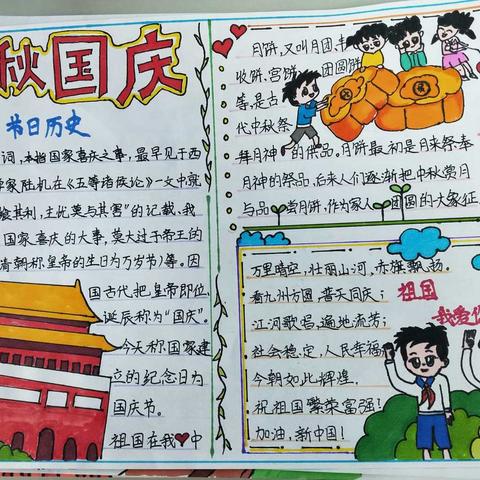 秋国庆
节日历史
词,本指国家喜庆之事,最早见于西
学家陆机在《五等诸侯论》一文中就
飨其利,主忧莫与其害"的记载、我
国家喜庆的大事,莫大过于帝王的
清朝称皇帝的生日为万岁节)等。因
国古代把皇帝即位、
诞辰称为"国庆"。
今天称国家建
立的纪念日为
国庆节。
祖国在我 中
月饼,又叫月团、丰
收饼、宫饼、团圆饼
等,是古
代中秋祭
拜月神 的供品。月饼最初是月来祭奉
月神的祭品,后来人们逐渐把中秋赏月
与品 尝月饼,作为家人 团圆的大象征
万里晴空,壮丽山河,赤旗飘扬。
看九州方圆,普天同庆;
江河歌唱,遍地流芳;
社会稳定,人民幸福
今朝如此辉煌。
祝祖国繁荣富强!
加油,新中国!
祖国
我爱你